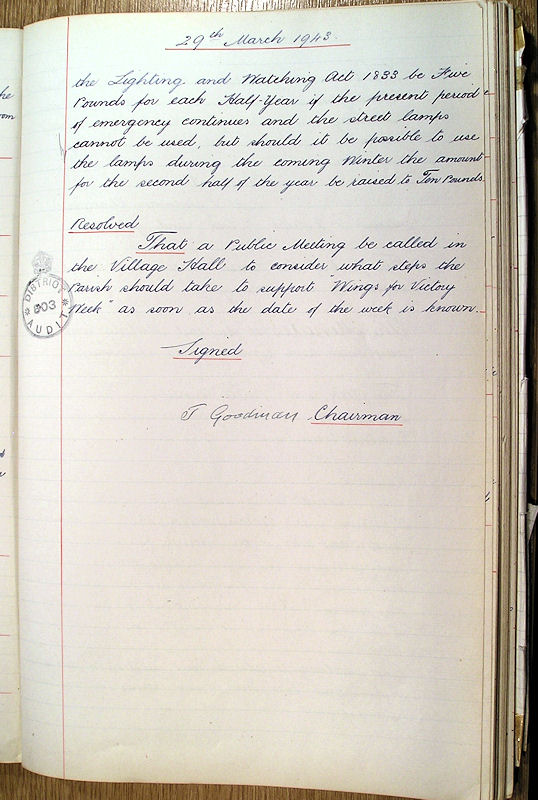 29th March 1943.
the Lighting and Watching Act 1833 be Five
Pounds for each Half-Year if the present period
of emergency continues and the street lamps
cannot be used, but should it be possible to use
the lamps during the coming Winter the amount
for the second half of the year be raised to Ten Pounds.
Resolved
That a Public Meeting be called in
the Village Hall to consider what steps the
Parish should take to support "Wings for Victory
Week" as soon as the date of the week is known.
DISTRICT
303
AUDIT
Signed
T Goodman Chairman